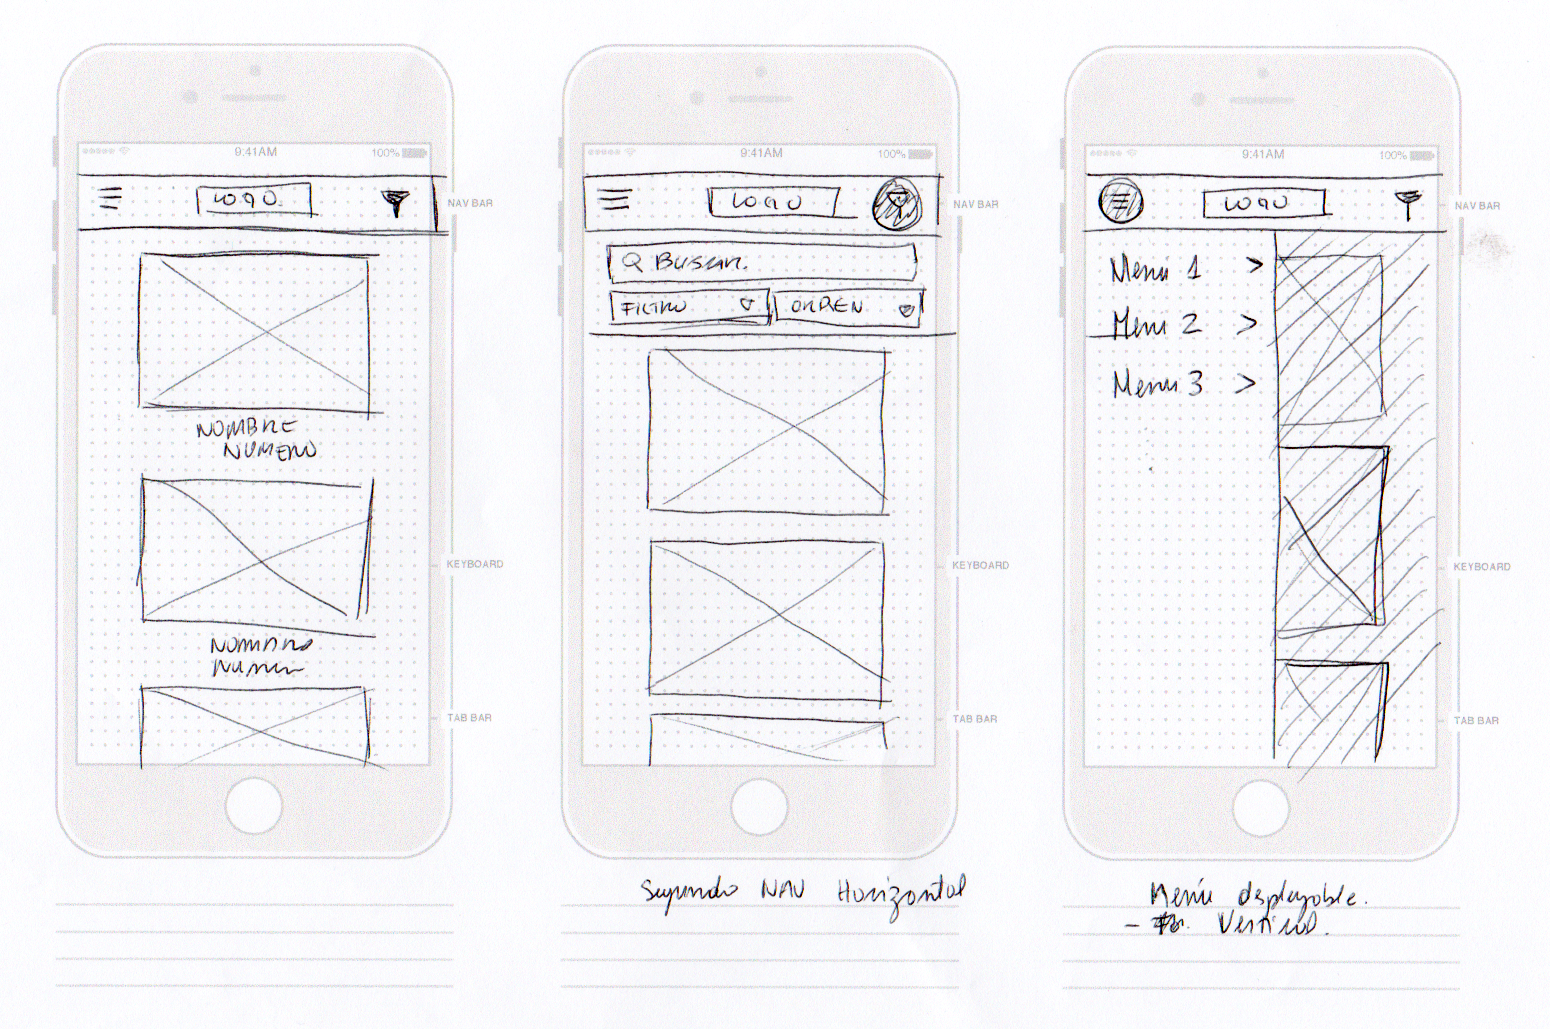 9:41AM
100%
LOGO
NAV BAR
NOMBRE
NUMERO
KEYBOARD
NOMBRE
NUMERO
TAB BAR
9:41AM
100%
LOGO
NAV BAR
BUSCAR.
FILTRO
ORDEN
KEYBOARD
TAB BAR
Segundo NAV Horizontal
9:41AM
100%
LOGO
NAV BAR
Menú 1 >
Menu 2 >
Menu 3 >
KEYBOARD
TAB BAR
Menú desplegable.
- Vertical.